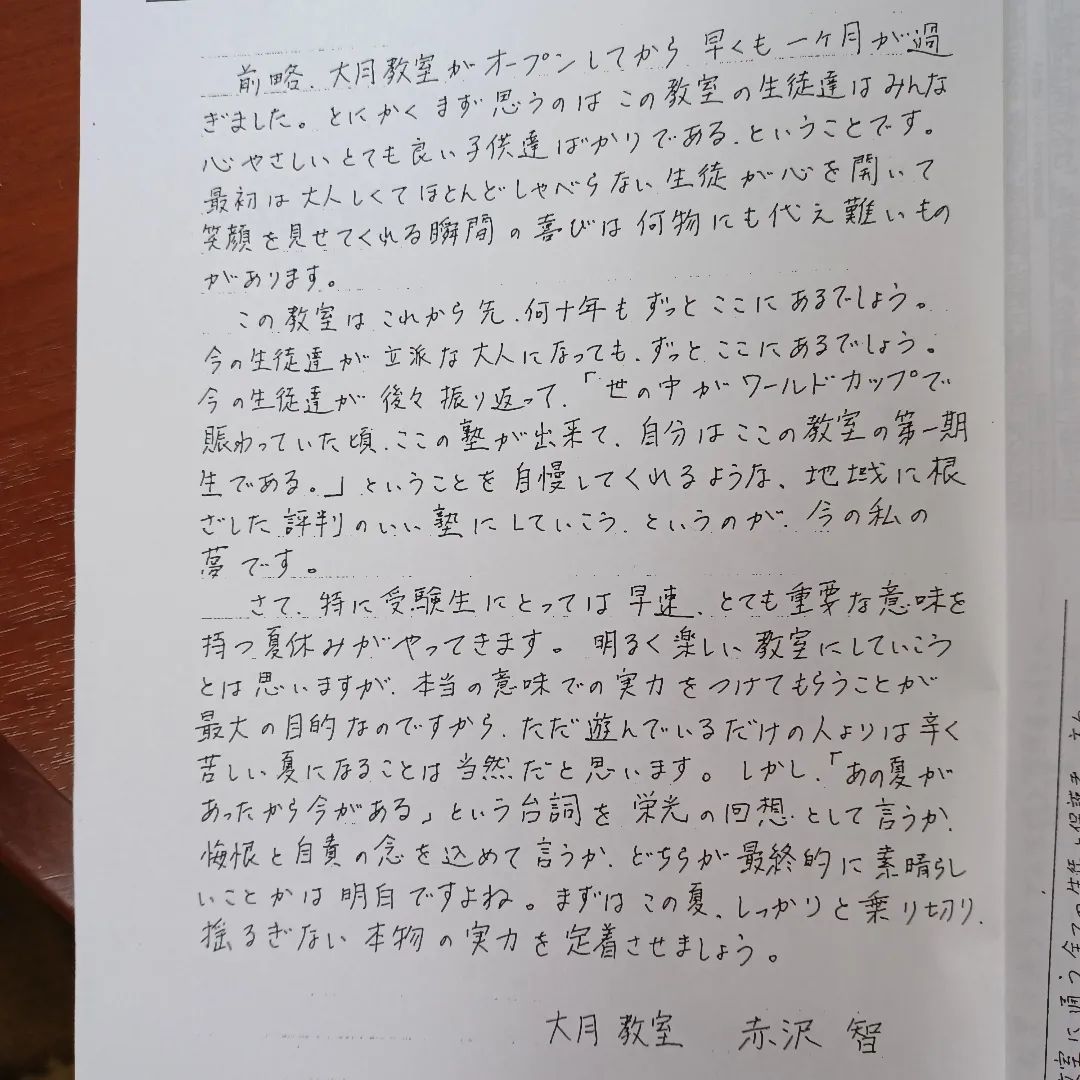 前略、大月教室がオープンしてから早くも一ヶ月が過
ぎました。とにかくまず思うのはこの教室の生徒達はみんな
心やさしいとても良い子供達ばかりである、ということです。
最初は大人しくてほとんどしゃべらない生徒が心を開いて
笑顔を見せてくれる瞬間の喜びは何物にも代え難いもの
があります。
この教室はこれから先、何十年もずっとここにあるでしょう。
今の生徒達が立派な大人になっても、ずっとここにあるでしょう。
今の生徒達が後々振り返って、「世の中がワールドカップで
賑わっていた頃、ここの塾が出来て、自分はここの教室の第一期
生である。」ということを自慢してくれるような、地域に根
ざした評判のいい塾にしていこう、というのが、今の私の
夢です。
さて、特に受験生にとっては早速、とても重要な意味を
持つ夏休みがやってきます。明るく楽しい教室にしていこう
とは思いますが、本当の意味での実力をつけてもらうことが
最大の目的なのですから、ただ遊んでいるだけの人よりは辛く
苦しい夏になることは当然だと思います。しかし、「あの夏が
あったから今がある」という台詞を栄光の回想として言うか、
悔恨と自責の念を込めて言うか、どちらが最終的に素晴らし
いことかは明白ですよね。まずはこの夏、しっかりと乗り切り、
揺るぎない本物の実力を定着させましょう。
大月教室 赤沢 智